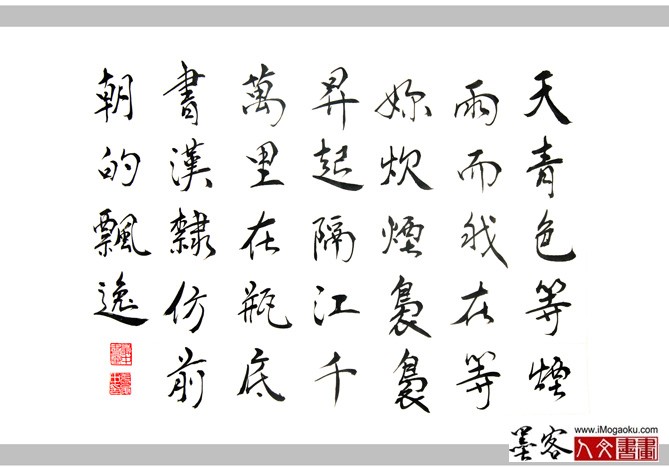 天青色等煙
雨而我在等
妳炊煙裊裊
昇起隔江千
萬里在瓶底
書漢隸仿前
朝的飄逸
墨客
www.iMogaoku.com
人文書畫